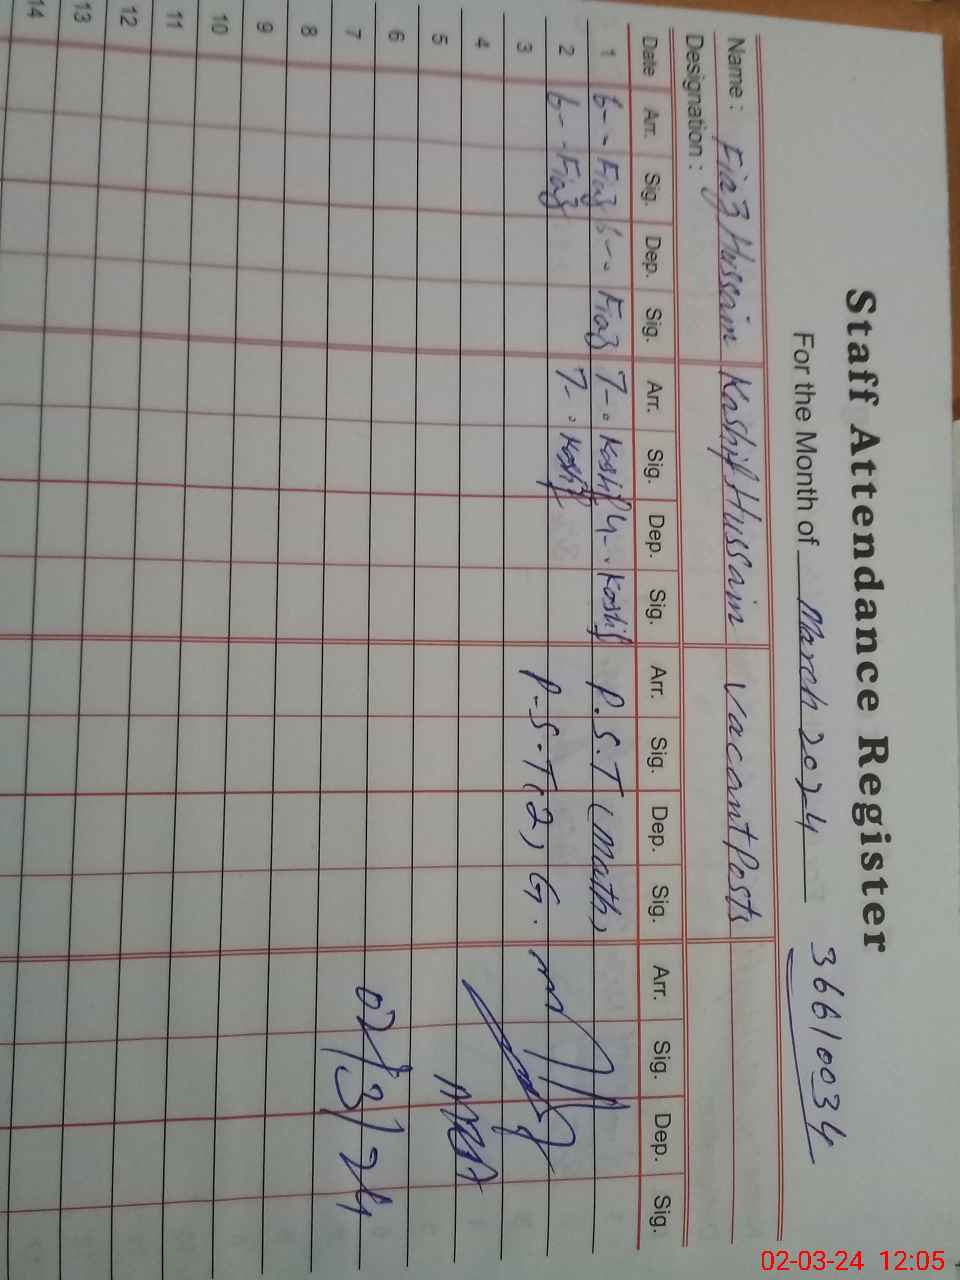 Staff Attendance Register
For the Month of March 2024 36610034
Name : Fiaz Hussain Kashif Hussain Vacant Posts
Designation :
Date Arr. Sig. Dep. Sig. Arr. Sig. Dep. Sig. Arr. Sig. Dep. Sig. Arr. Sig. Dep. Sig.
1 Fiaz Fiaz Kashif Kashif P.S.T (Math)
2 Fiaz Kashif
3 P-S-T
4
5
6
7 02/3/24
8
9
10
11
12
13
14
02-03-24 12:05